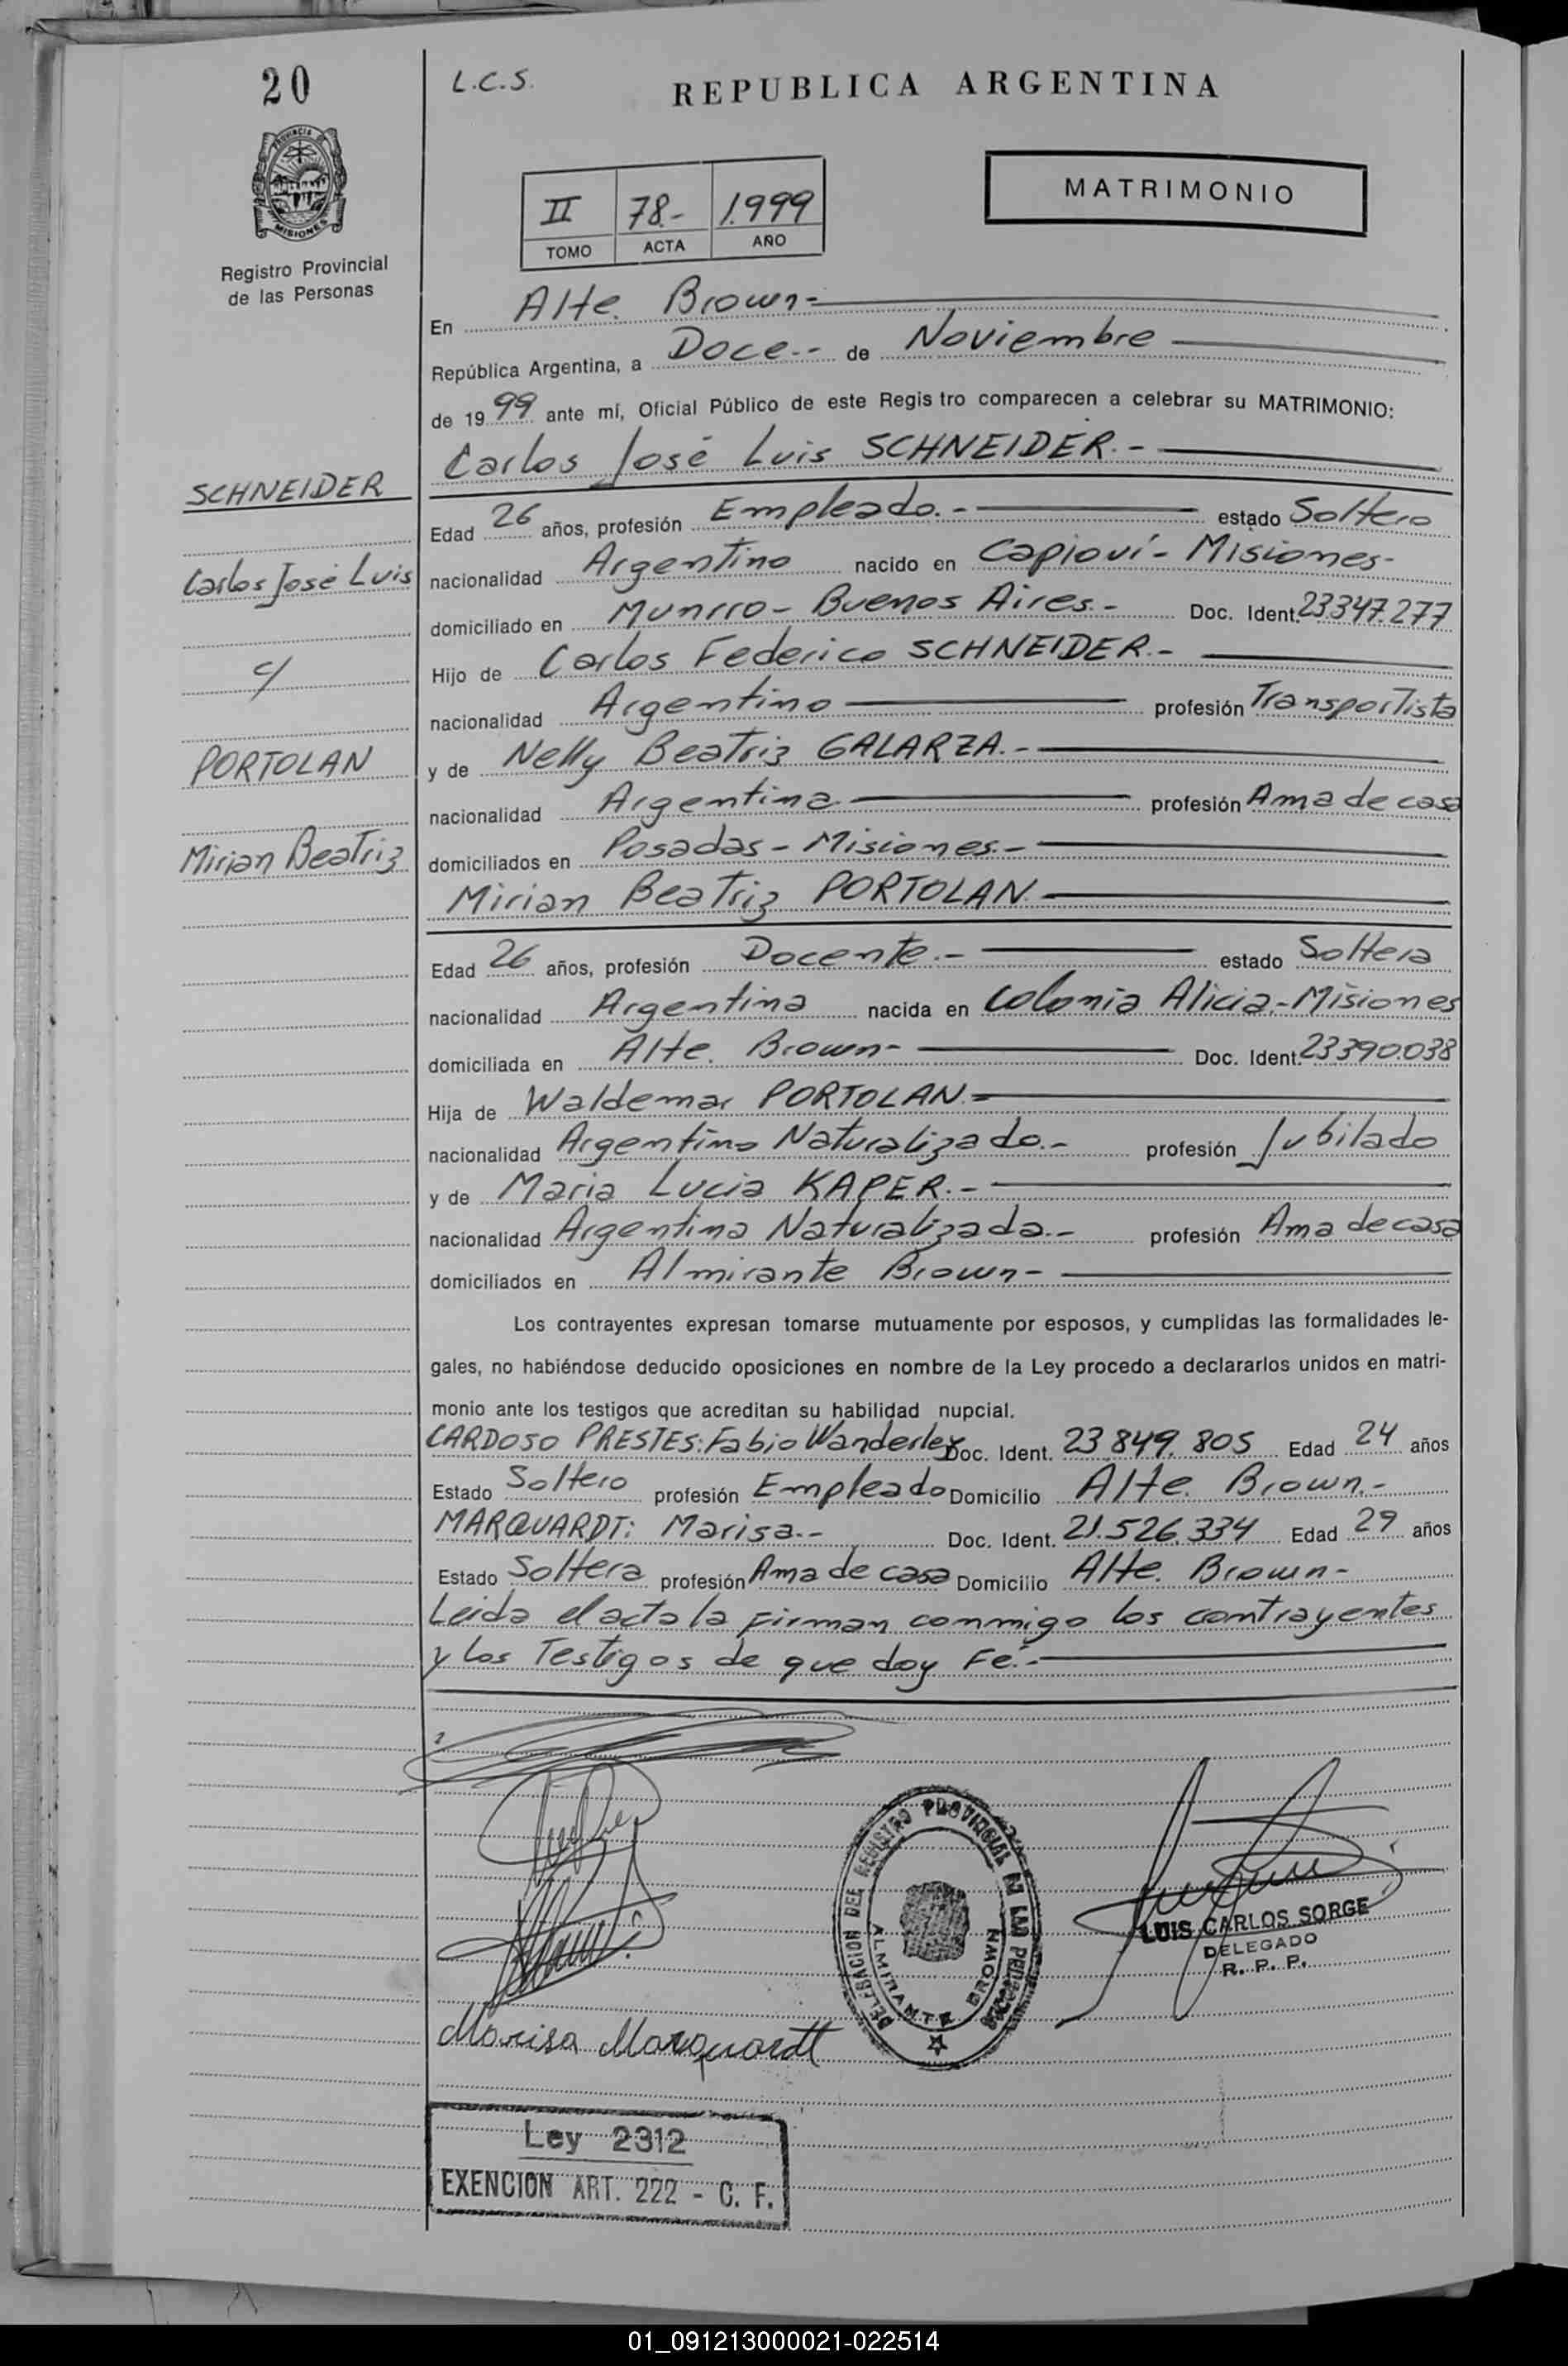 20
L.C.S.
REPUBLICA ARGENTINA
PROVINCIA DE
MISIONES
Registro Provincial
de las Personas
II 78.- 1.999
TOMO ACTA AÑO
MATRIMONIO
En Alte. Brown-
República Argentina, a Doce.-- de Noviembre
de 1999 ante mí, Oficial Público de este Regis tro comparecen a celebrar su MATRIMONIO:
Carlos José Luis SCHNEIDER.-
SCHNEIDER
Carlos José Luis
c/
PORTOLAN
Mirian Beatriz
Edad 26 años, profesión Empleado.- estado Soltero
nacionalidad Argentino nacido en Capioví- Misiones-
domiciliado en Munrro- Buenos Aires.- Doc. Ident. 23347.277
Hijo de Carlos Federico SCHNEIDER.-
nacionalidad Argentino profesión Transportista
y de Nelly Beatriz GALARZA.-
nacionalidad Argentina profesión Ama de casa
domiciliados en Posadas- Misiones.-
Mirian Beatriz PORTOLAN.
Edad 26 años, profesión Docente.- estado Soltera
nacionalidad Argentina nacida en Colonia Alicia.-Misiones
domiciliada en Alte. Brown- Doc. Ident. 23390.038
Hija de Waldemar PORTOLAN.=
nacionalidad Argentino Naturalizado.- profesión Jubilado
y de Maria Lucia KAPER.-
nacionalidad Argentina Naturalizada.- profesión Ama de casa
domiciliados en Almirante Brown-
Los contrayentes expresan tomarse mutuamente por esposos, y cumplidas las formalidades le-
gales, no habiéndose deducido oposiciones en nombre de la Ley procedo a declararlos unidos en matri-
monio ante los testigos que acreditan su habilidad nupcial.
CARDOSO PRESTES: Fabio Wanderley Doc. Ident. 23.849.805 Edad 24 años
Estado Soltero profesión Empleado Domicilio Alte. Brown.-
MARQUARDT: Marisa.-- Doc. Ident. 21.526.334 Edad 29 años
Estado Soltera profesión Ama de casa Domicilio Alte. Brown-
Leida el acta la firman conmigo los contrayentes
y los Testigos de que doy Fé.-
DELEGACION DEL REGISTRO PROVINCIAL DE LAS PERSONAS
ALMIRANTE BROWN
LUIS CARLOS SORGE
DELEGADO
R. P. P.
Marisa Marquardt
Ley 2312
EXENCION ART. 222 - C. F.
01_091213000021-022514